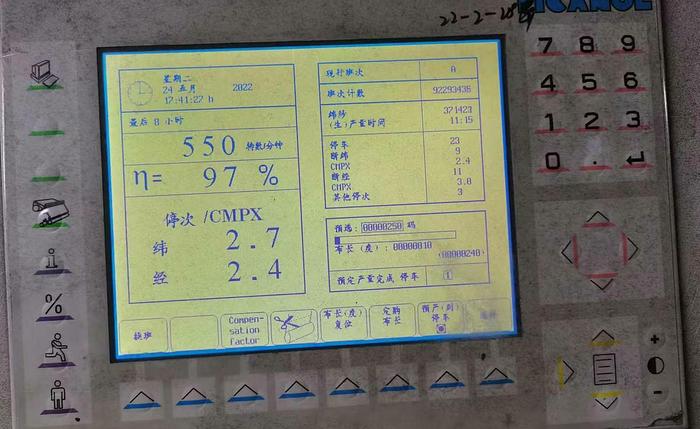 22-2-28
PICANOL
星期二
24 五月 2022
17:41:27 h
最后 8 小时
550 转数/分钟
η= 97 %
停次 /CMPX
纬 2.7
经 2.4
现行班次 A
班次计数 92293436
纬纱 371423
(生)产量时间 11:15
停车 23
断纬 9
CMPX 2.4
断经 11
CMPX 3.0
其他停次 3
预选: 00000250 码
布长(度): 00000010
(00000240)
预定产量完成 停车 1
换班
Compen-
sation
Factor
布长(度)
复位
定购
布长
预产(到)
停车
7 8 9
4 5 6
1 2 3
0 . ↵
i
%
+
-